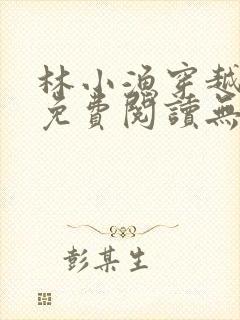 林小渔穿越
免費閱讀無
彭某生